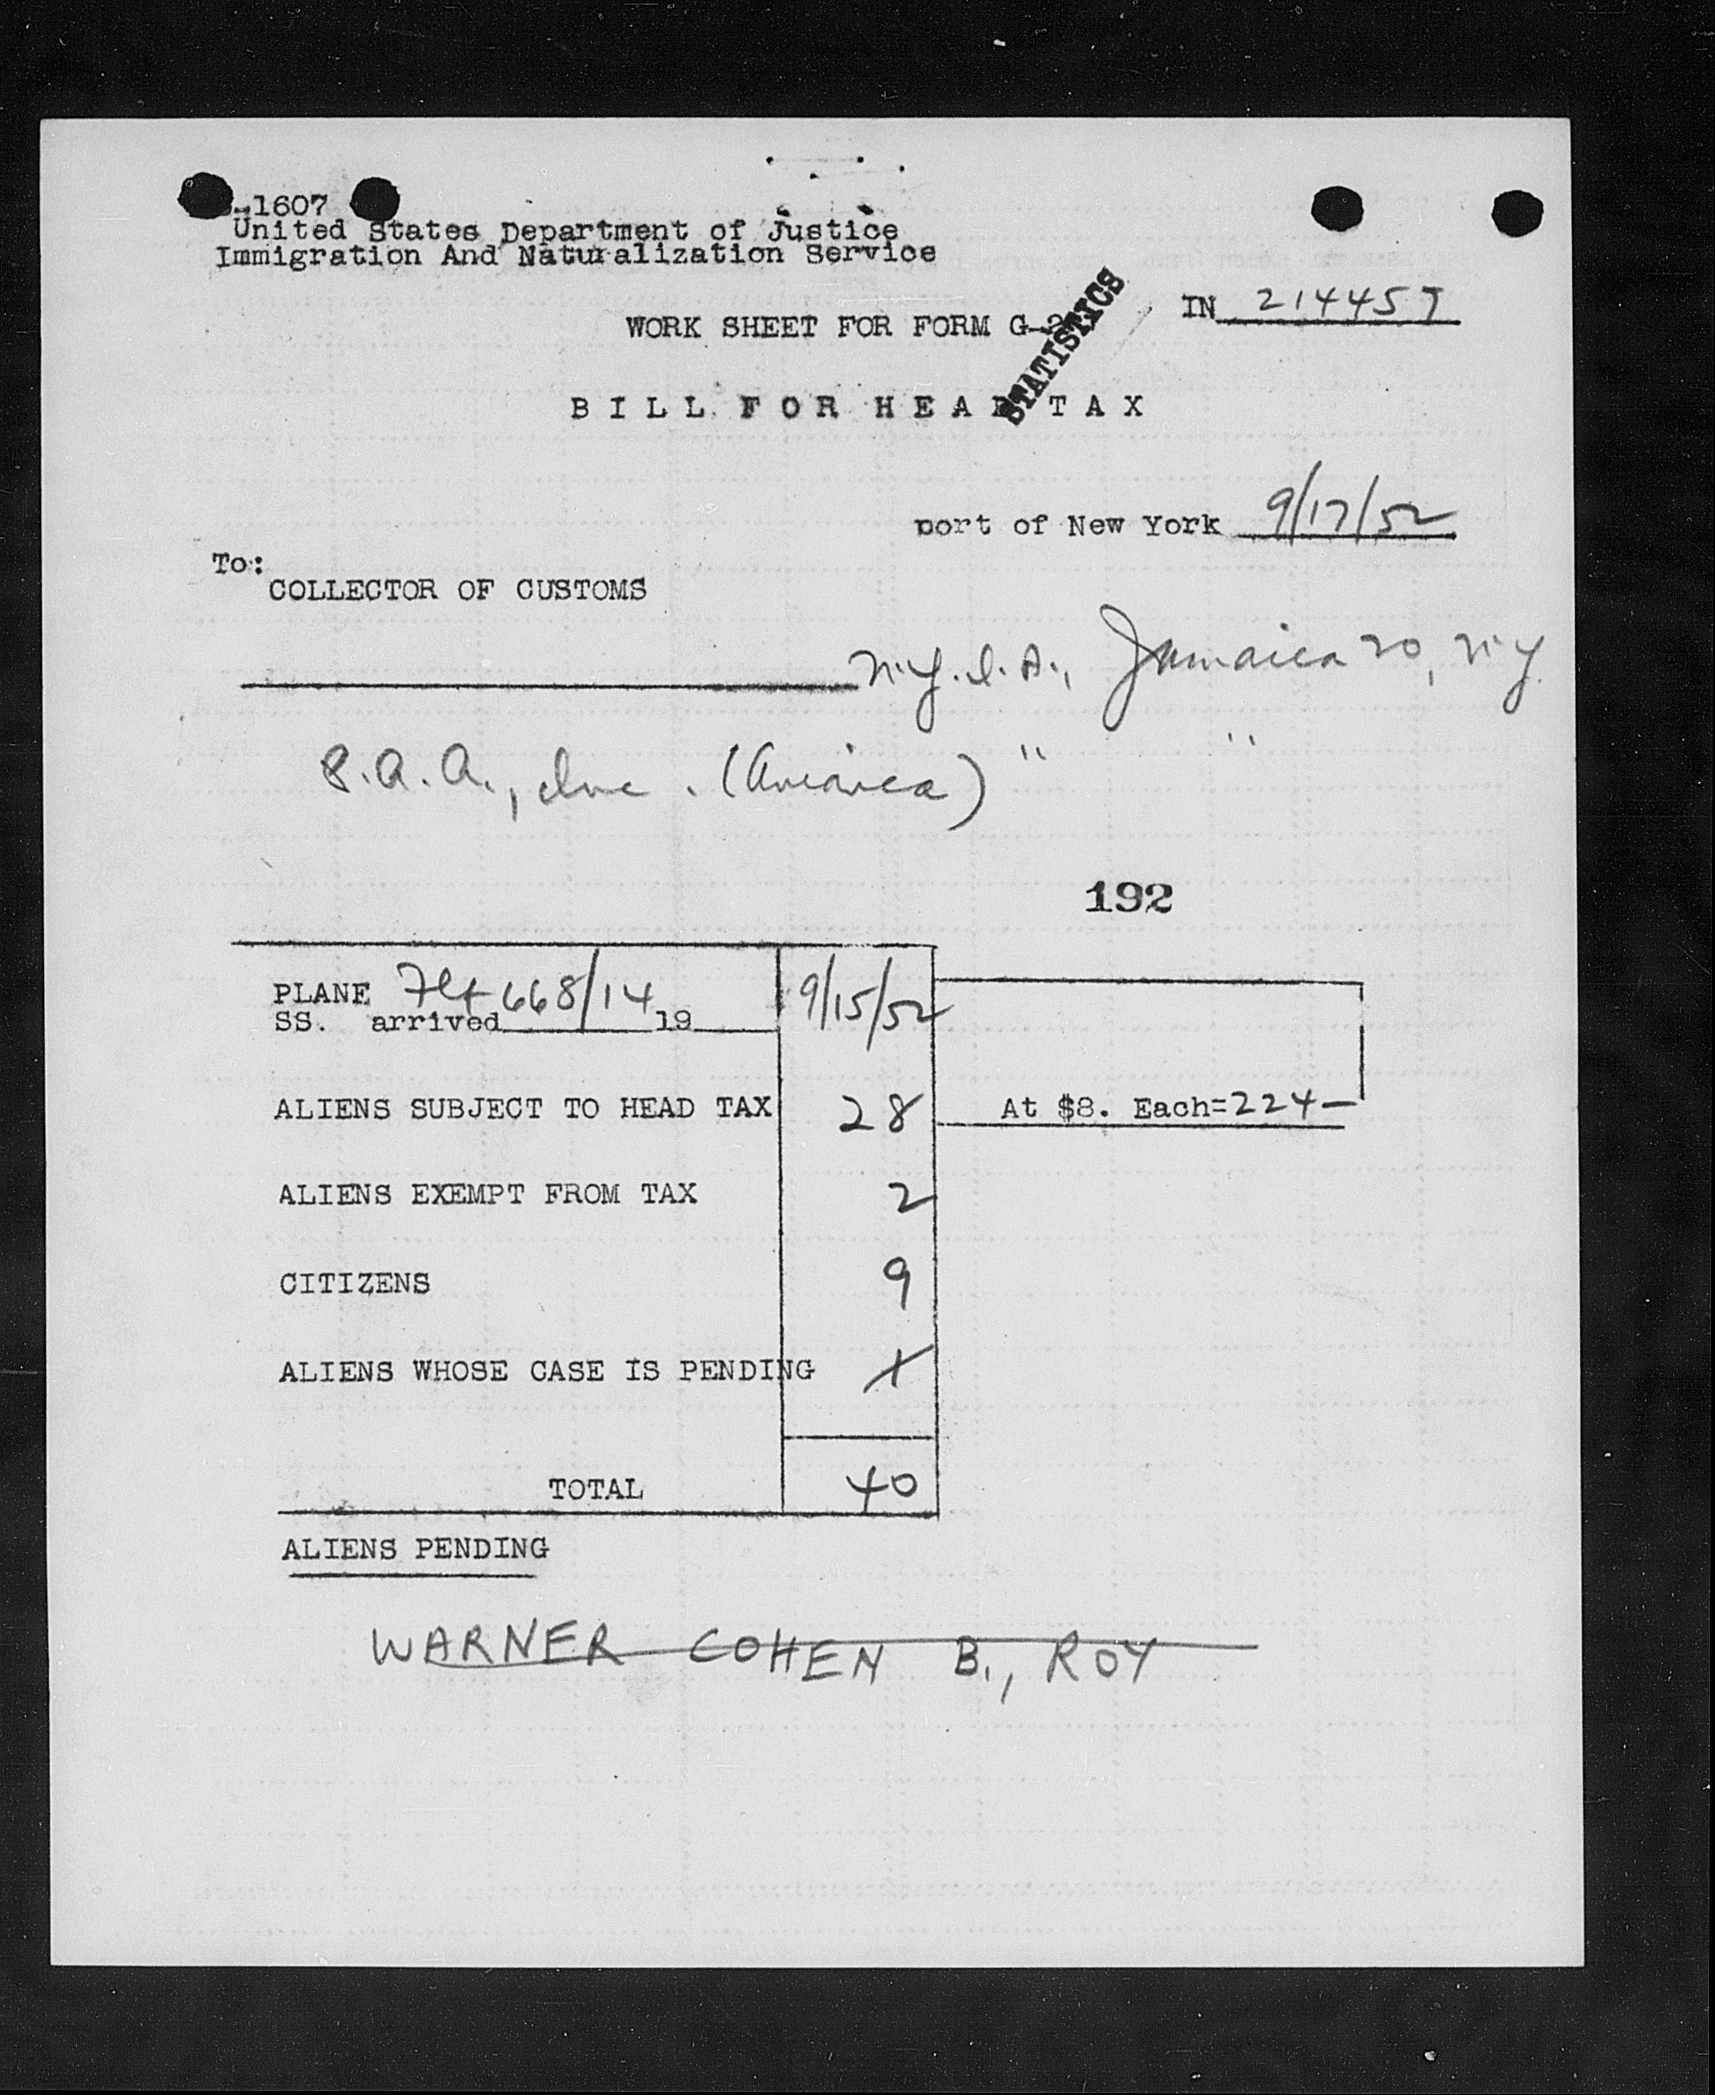 -1607
United States Department of Justice
Immigration And Naturalization Service
IN 214457
WORK SHEET FOR FORM G-2
STATISTICS
BILL FOR HEAD TAX
port of New York 9/17/52
To:
COLLECTOR OF CUSTOMS
N.Y.I.A., Jamaica 20, N.Y.
P.A.A., Inc. (Avianca) " "
192
PLANE Flt 668/14 9/15/52
SS. arrived 19
ALIENS SUBJECT TO HEAD TAX 28 At $8. Each=224-
ALIENS EXEMPT FROM TAX 2
CITIZENS 9
ALIENS WHOSE CASE IS PENDING 1
TOTAL 40
ALIENS PENDING
WARNER COHEN B., ROY